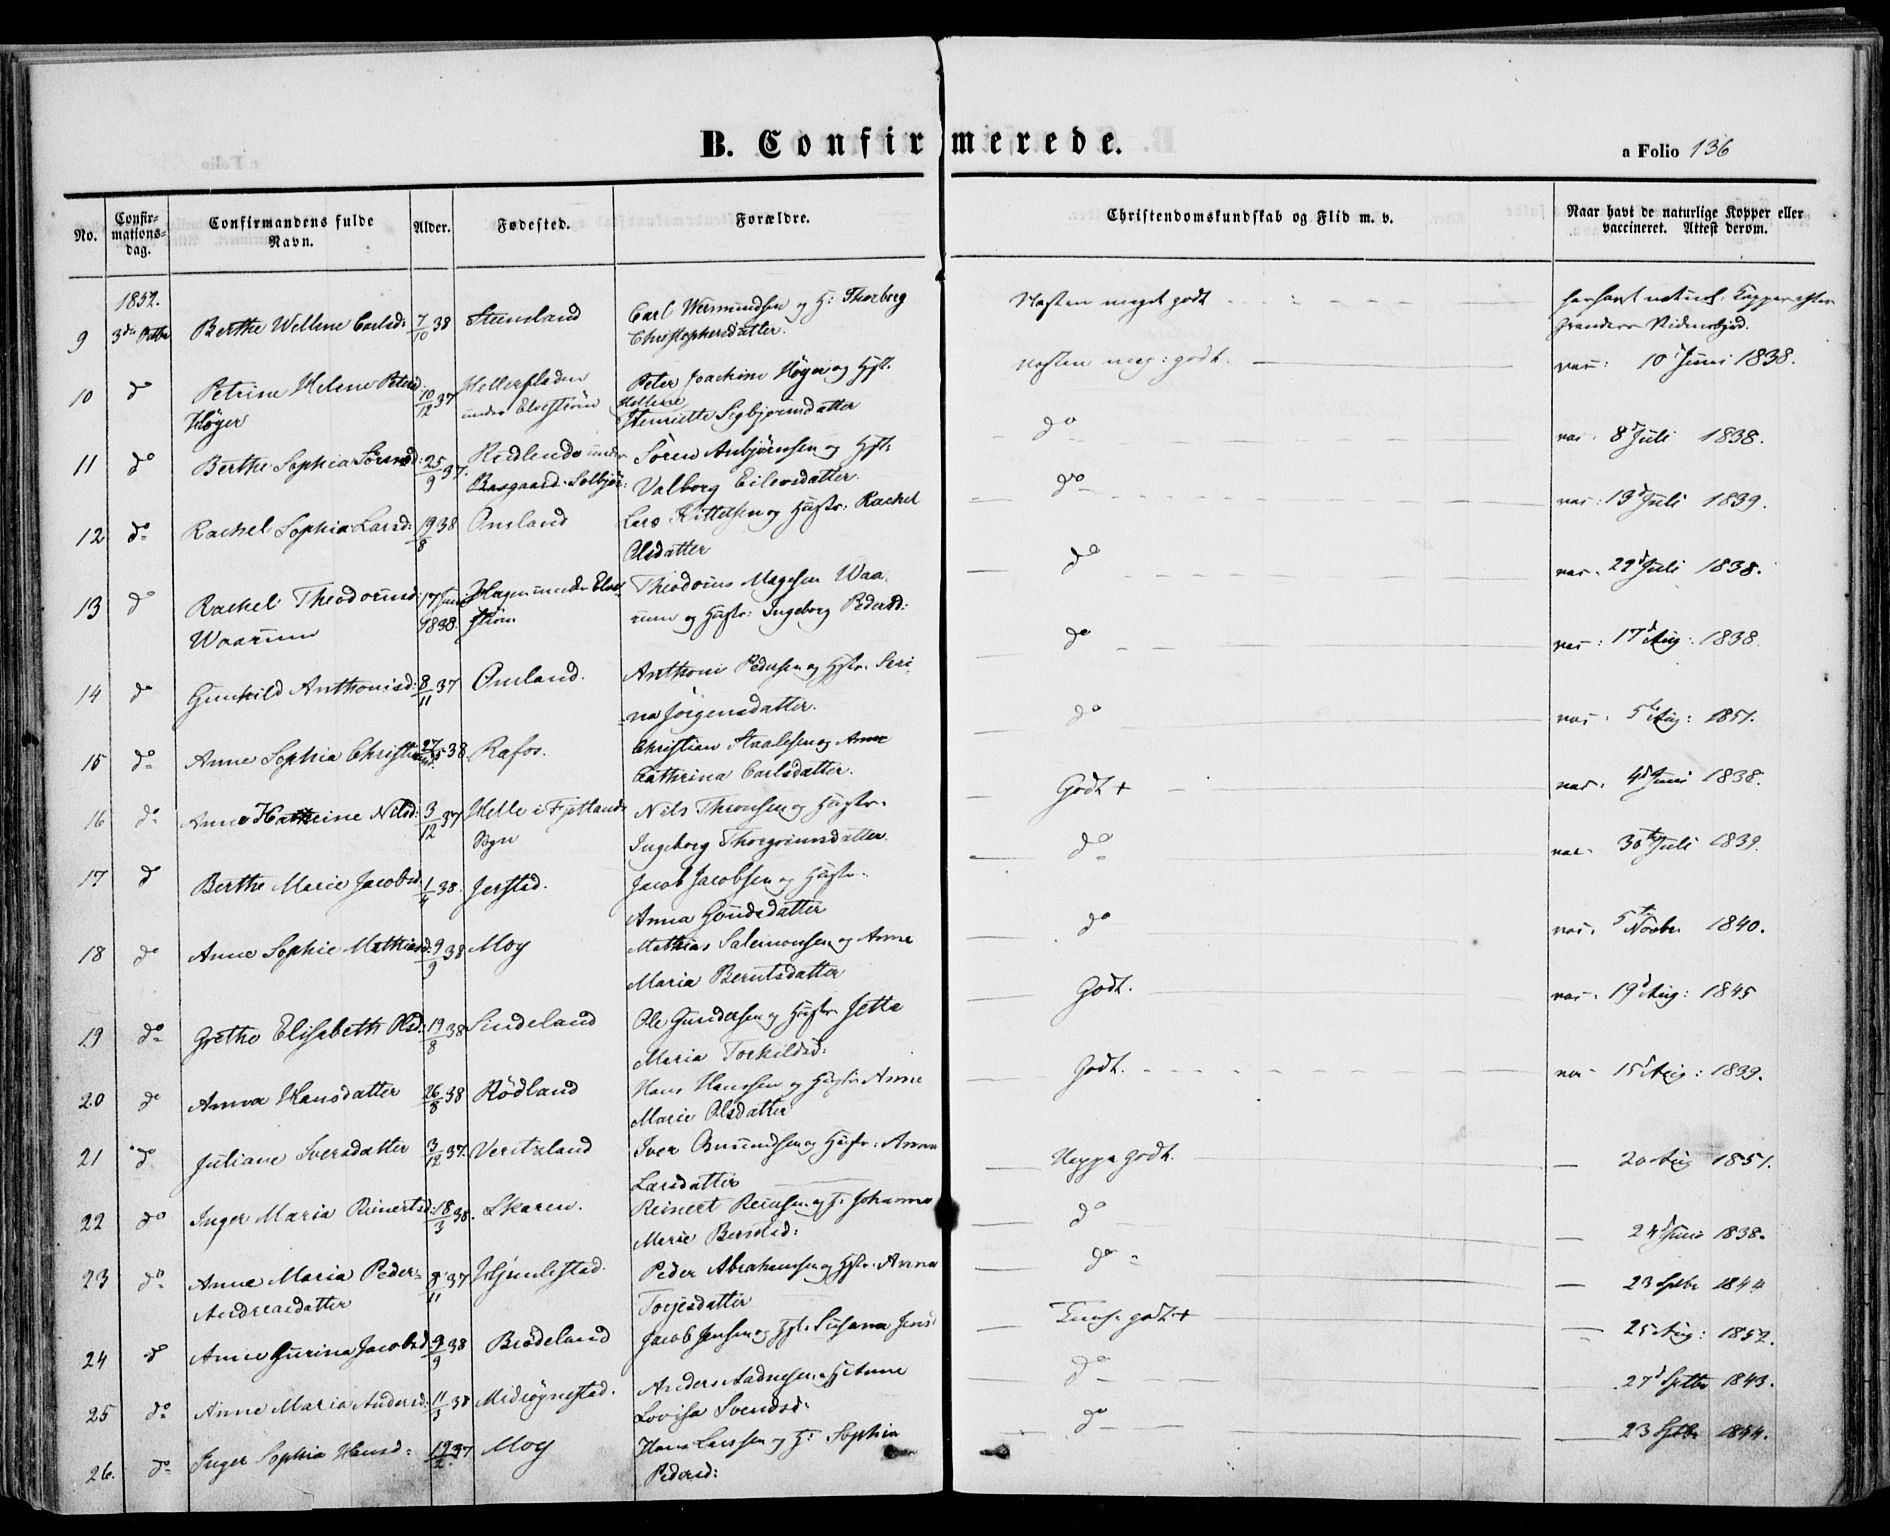 B. Confirmerede.
a Folio 136
No.
Confir-
mations-
dag.
Confirmandens fulde
Navn.
Alder.
Fødested.
Forældre.
Christendomskundskab og Flid m. v.
Naar havt de naturlige Kopper eller
vaccineret. Attest derom.
1852.
9 3die Octbr Berthe Wellene Carlsd: 7/10 38 Steensland Carl Wermundsen og H: Thorborg
Christophersdatter.
Næsten meget godt
10 do Petrine Helene Petersd: 10/12 37 Hellesfladen Peter Joachim Høyer og Hst.
Høyer under Elvestrøm Hellene
Henriette Sigbjørnsdatter
Næsten meg: godt. vac: 10d Juni 1838.
11 do Berthe Sophia Sørensd: 25/9 37. Rødland under Søren Anbjørnsen og Hst:
Valborg Eilevsdatter.
do vac: 8d Juli 1838.
12 do Rachel Sophia Larsd: 19/8 38 Omland Lars Kittelsen og Hustr: Rachel
Olsdatter
do vac: 13d Juli 1839.
13 do Rachel Theodorusd: 17 Juni Hagen under Elve Theodorus Magesen Waa
Waarum 1838. strøm rum og Hustr: Ingeborg Pedersd:
do vac. 22d Juli 1838.
14 do Gunhild Anthonisd: 8/11 37 Omland. Anthoni Pedersen og Hstr. Seri
na Jörgensdatter.
do vac: 17d Aug: 1838
15 do Anne Sophia Christiansd. 27/5 38 Rafos. Christian Staalesen og Anne
Cathrina Carlsdatter.
do vac: 5te Aug: 1851.
16 do Anne Kathrine Nilsd: 3/12 37 Helle i Fjotlands Nils Theonsen og Hustr.
Sogn Ingeborg Thorgrimsdatter
Godt + vac. 4d Juni 1838.
17 do Berthe Marie Jacobsd. 1/4 38. Jerstad. Jacob Jacobsen og Hustr:
Anna Gundsdatter
do vac. 30te Juli 1839.
18 do Anne Sophie Mathiasd: 9/9 38 Moy Mathias Salemonsen og Anne
Maria Berntsdatter
do vac. 5te Novbr 1840.
19 do Grethe Elisabeth Olsd: 19/8 38 Sindeland Ole Gundersen og Hustr Jette
Maria Torkildsd:
Godt. vac. 19d Aug: 1845
20 do Anna Hansdatter 26/8 38 Rödland Hans Hanssen og Hustr Anne
Marie Olsdatter
Godt. vac 15d Aug: 1839.
21 do Juliane Iversdatter 3/12 37. Veritzland Iver Omundsen og Hustr: Anna
Larsdatter
Neppe godt. 20 Aug 1851.
22 do Inger Maria Reinertsd: 18/3 38. Skaren. Reinert Reiersen og H. Johanne
Marie Berntsd:
do 24d Juni 1838.
23 do Anne Maria Peder- 8/11 37 Hjemlestad Peder Abrahamsen og Hstr. Anna
Andreasdatter Torjesdatter
do 23 Sptbr 1844
24 do Anne Gurina Jacobsd 9/9 38 Brödeland Jacob Jensen og Hst. Susanna Jensd
godt+ 25 Aug: 1852.
25 do Anne Maria Andersd: 11/3 38 Medrøgnestad. Anders Aadnesen og H Anne
Lovisa Svendsd:
do 27d Sptbr 1843.
26. do Inger Sophia Hansd: 19/2. 37 Moy Hans Larssen og H: Sophia
Pedersd:
do 23 Sptbr 1844.